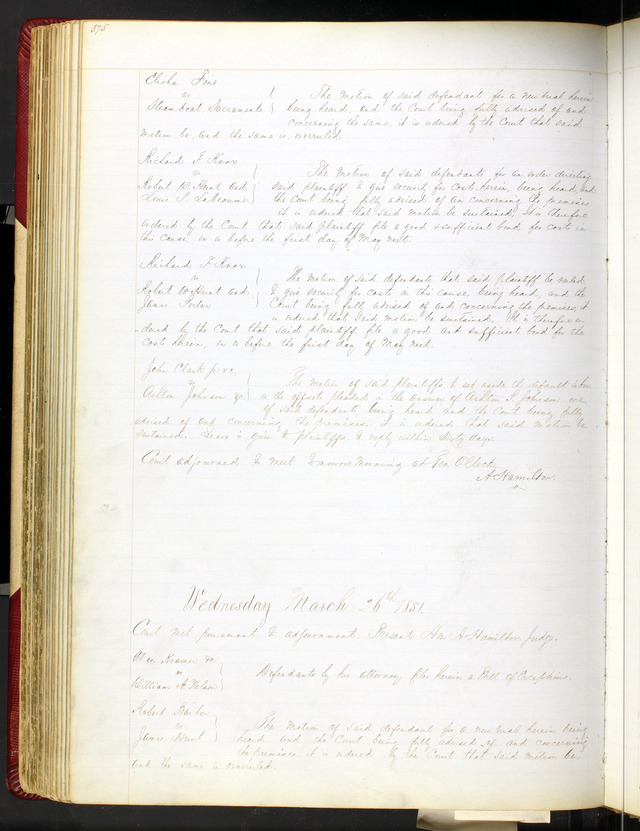 575
Elisha Sone
vs
Steamboat Sacramento
The motion of said defendant for a new trial herein
being heard, and the Court being fully advised of and
concerning the same, it is ordered by the Court that said
motion be, and the same is overruled
Richard F Knox
vs
Robert W Hunt and
Louis F Labeaume
The motion of said defendants, for an order directing
said plaintiff to give security for costs herein, being heard, and
the Court being fully advised of an concerning the premises
it is ordered that said motion be sustained; It is therefore
ordered by the Court that said plaintiff file a good & sufficient bond for costs in
this cause on or before the first day of May next.
Richard F Knox
vs
Robert W Hunt and
James Porter
The motion of said defendants that said plaintiff be ruled
to give security for costs in this cause, being heard, and the
Court being fully advised of and concerning the premises, it
is ordered that said motion be sustained. It is therefore or-
dered by the Court that said plaintiff file a good and sufficient bond for the
costs herein, on or before the first day of May next.
John Clark
vs
Ashton Johnson &c
The motion of said plaintiffs to set aside the default
in the offsets pleaded in the answer of Ashton P. Johnson one
of said defendants, being heard and the Court being fully
advised of and concerning the premises, it is ordered that said motion be
sustained. Leave is given to plaintiffs to reply within sixty days.
Court adjourned to meet tomorrow morning at Ten O'Clock
A. Hamilton
Wednesday March 26th 1851.
Court met pursuant to adjournment. Present Hon. A Hamilton Judge.
Kramer &c.
vs
William A Nelson
Defendants by his attorney files herein a Bill of Exceptions.
Robert Barber
vs
James Hunt
The motion of said defendant for a new trial herein being
heard and the Court being fully advised of and concerning
the premises it is ordered by the Court that said motion be
and the same is overruled.